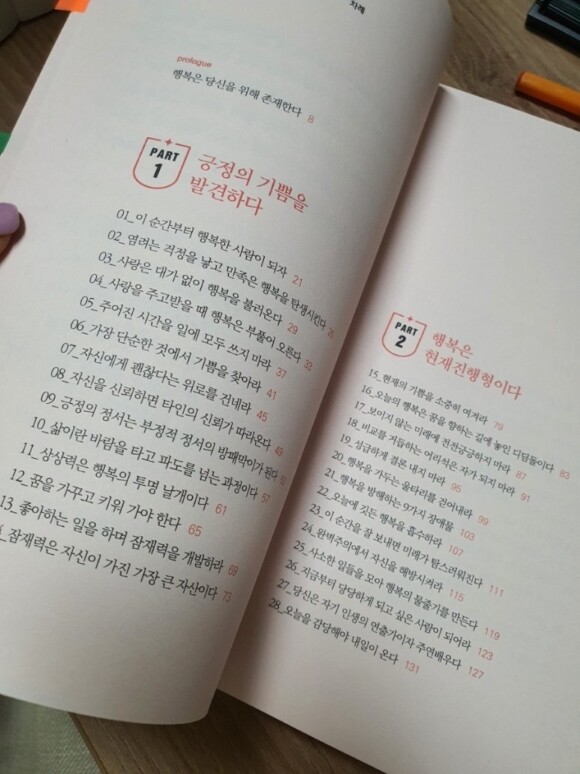 차례
prologue
행복은 당신을 위해 존재한다 8
PART
1
긍정의 기쁨을
발견하다
01_이 순간부터 행복한 사람이 되자 21
02_염려는 걱정을 낳고 만족은 행복을 탄생시킨다 25
03_사랑은 대가 없이 행복을 불러온다 29
04_사랑을 주고받을 때 행복은 부풀어 오른다 33
05_주어진 시간을 일에 모두 쓰지 마라 37
06_가장 단순한 것에서 기쁨을 찾아라 41
07_자신에게 괜찮다는 위로를 건네라 45
08_자신을 신뢰하면 타인의 신뢰가 따라온다 49
09_긍정의 정서는 부정적 정서의 방패막이가 된다
10_삶이란 바람을 타고 파도를 넘는 과정이다 57
11_상상력은 행복의 투명 날개이다 61
12_꿈을 가꾸고 키워 가야 한다 65
13_좋아하는 일을 하며 잠재력을 개발하라 69
4_잠재력은 자신이 가진 가장 큰 자산이다 73
PART
2
행복은
현재진행형이다
15_현재의 기쁨을 소중히 여겨라 79
16_오늘의 행복은 꿈을 향하는 길에 놓인 디딤돌이다 83
17_보이지 않는 미래에 전전긍긍하지 마라 87
18_비교를 거듭하는 어리석은 자가 되지 마라 91
19_성급하게 결론 내지 마라 95
20_행복을 가두는 울타리를 걷어내라 99
21_행복을 방해하는 9가지 장애물 103
22_오늘에 깃든 행복을 흡수하라 107
23_이 순간을 잘 보내면 미래가 탐스러워진다 111
24_완벽주의에서 자신을 해방시켜라 115
25_사소한 일들을 모아 행복의 물줄기를 만든다 119
26_지금부터 당당하게 되고 싶은 사람이 되어라 123
27_당신은 자기 인생의 연출가이자 주연배우다 127
28_오늘을 감당해야 내일이 온다 131